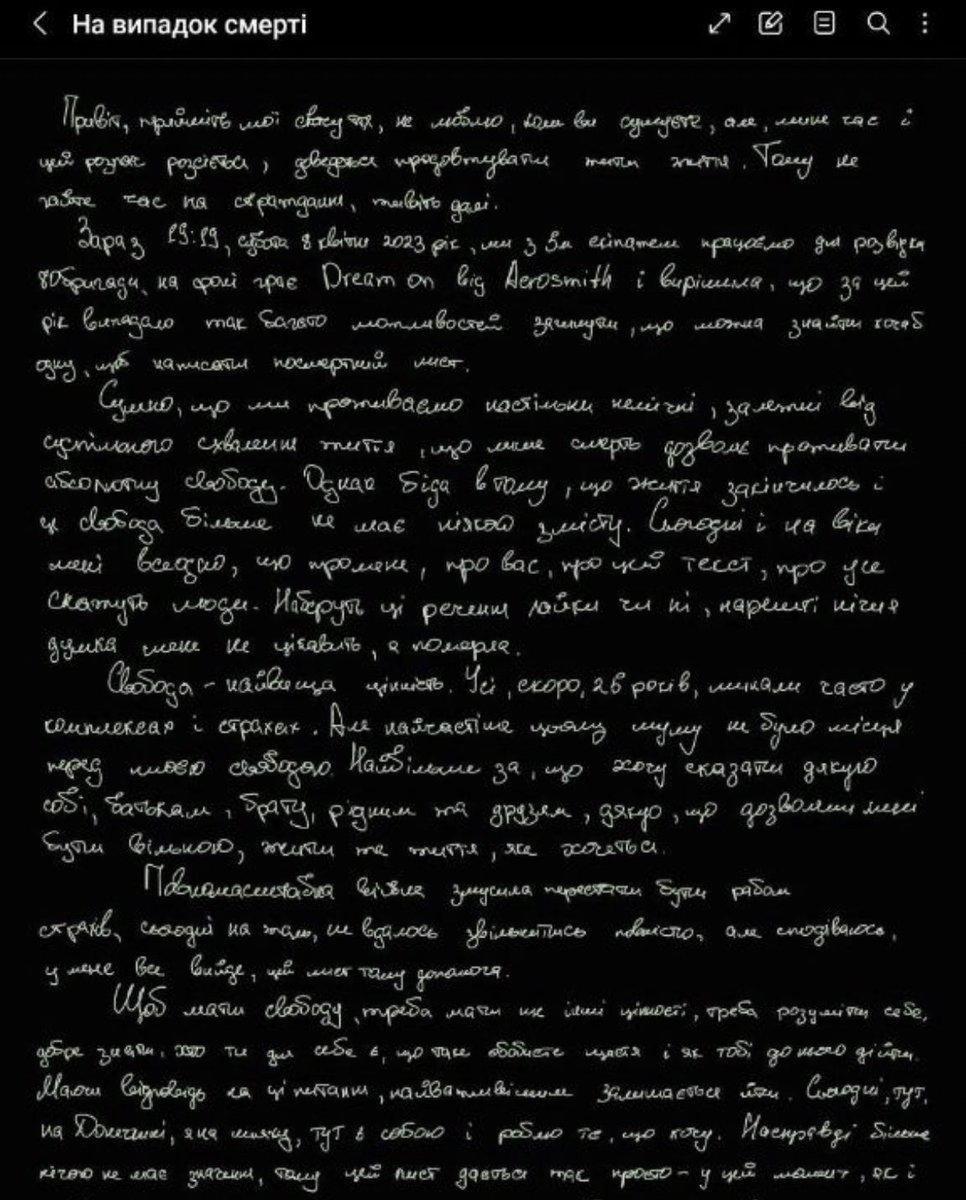 На випадок смерті
Привіт, прийміть мої співчуття, не люблю, коли ви сумуєте, але, мине час і
цей розпач розсіється, доведеться продовжувати жити життя. Тому не
гайте час на страждання, живіть далі.
Зараз 19:19, субота 8 квітня 2023 рік, ми з 3м екіпажем працюємо для розвідки
80бригади, на фоні грає Dream on від Aerosmith і вирішила, що за цей
рік випадало так багато можливостей загинути, що можна знайти хочаб
одну, щоб написати посмертний лист.
Сумно, що ми проживаємо настільки не, залежні від
суспільного схвалення життя, що лише смерть дозволяє проживати
абсолютну свободу. Однак біда в тому, що життя закінчилось і
ця свобода більше не має ніякого змісту. Сьогодні і на віки
мені всеодно, що про мене, про вас, про цей текст, про усе
скажуть люди. Наберуть ці речення лайки чи ні, нарешті нічия
думка мене не цікавить, я померла.
Свобода - найвища цінність. Усі, скоро, 26 років, минали часто у
комплексах і страхах. Але найчастіше цьому шуму не було місця
перед моєю свободою. Найбільше за, що хочу сказати дякую
собі, батькам, брату, рідним та друзям, дякую, що дозволяли мені
бути вільною, жити те життя, яке хочеться.
Повномасштабна війна змусила перестати бути рабом
страхів, сьогодні на жаль, не вдалось звільнитись повністю, але сподіваюсь,
у мене все вийде, цей лист тому допомога.
Щоб мати свободу, треба мати інші цінності, треба розуміти себе,
добре знати, хто ти для себе є, що таке щастя і як тобі до нього дійти.
Маючи відповідь на ці питання, найважливішим залишається йти. Сьогодні, тут,
на Донеччині, я на шляху, тут є собою і роблю те, що хочу. Насправді більше
нічого не має значення, тому цей лист дається так просто - у цей момент, як і